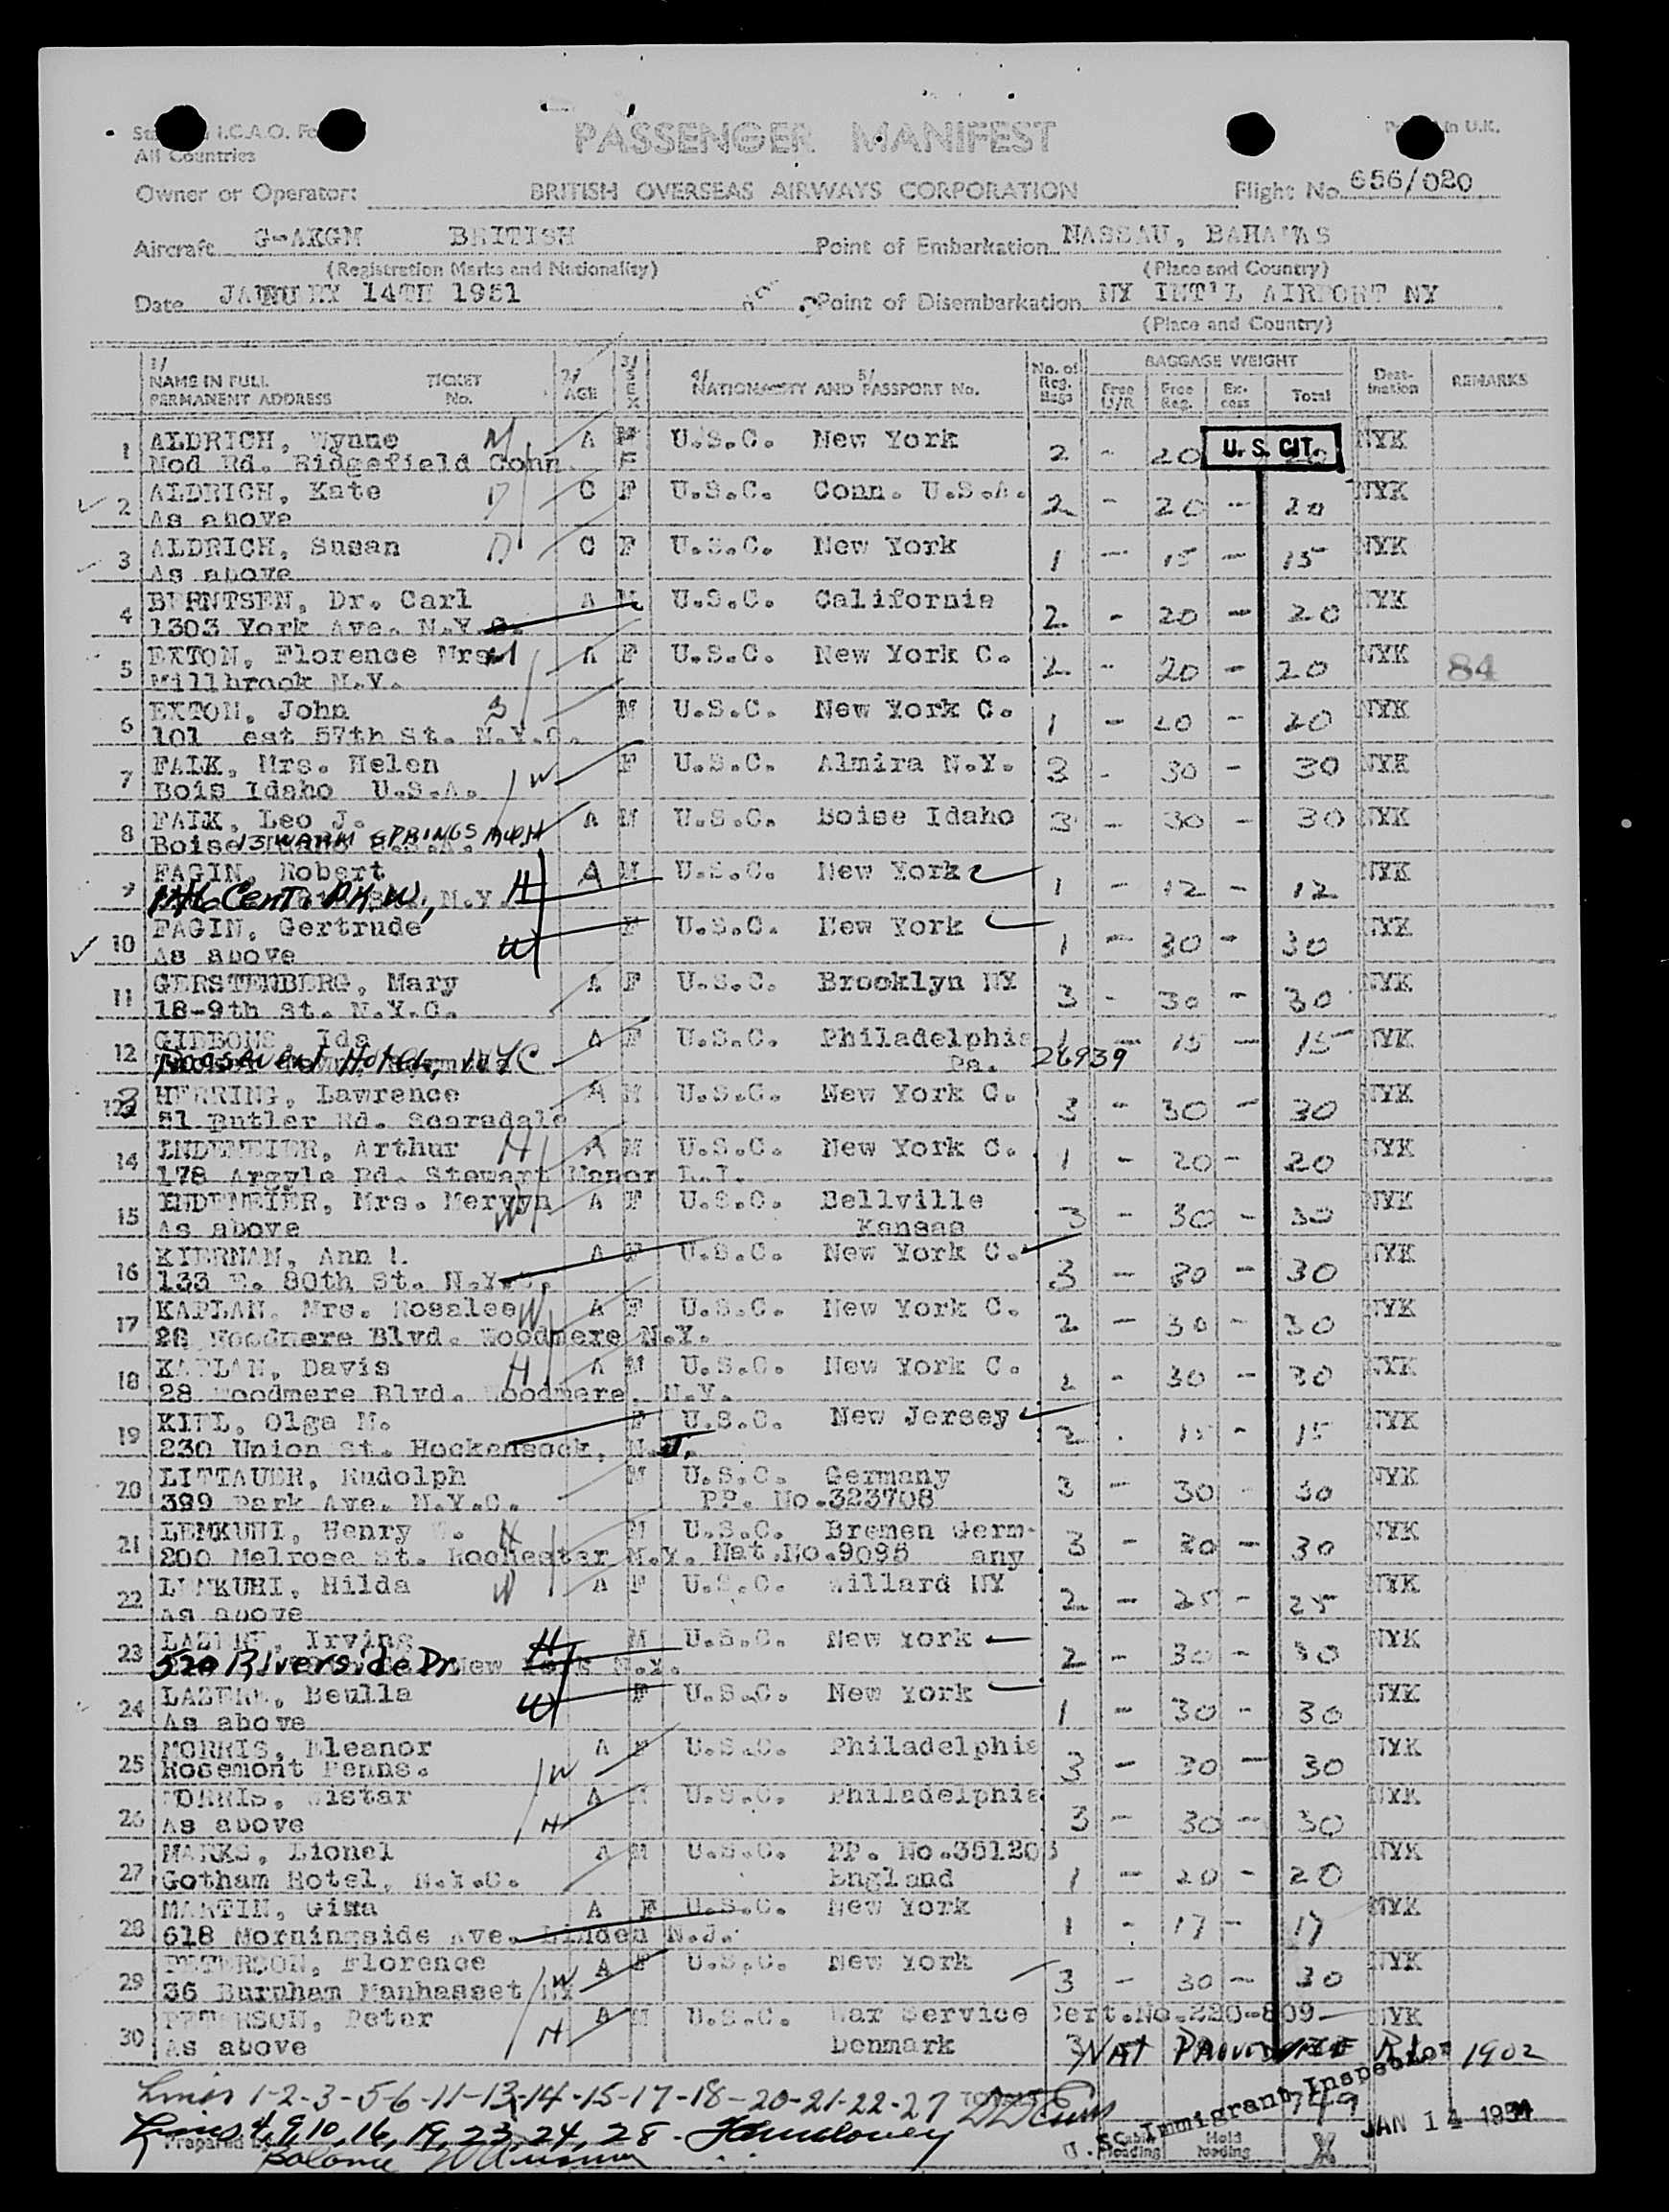 I.C.A.O.
All Countries
PASSENGER MANIFEST
in U.K.
Owner or Operator: BRITISH OVERSEAS AIRWAYS CORPORATION Flight No. 656/020
Aircraft G-AKGM BRITISH Point of Embarkation NASSAU, BAHAMAS
(Registration Marks and Nationality) (Place and Country)
Date 14TH 1951 Point of Disembarkation NY INT'L AIRPORT NY
(Place and Country)
1/ NAME IN FULL PERMANENT ADDRESS TICKET No. 2/ AGE 3/ SEX 4/ NATIONALITY AND 5/ PASSPORT No. No. of Reg. Bags BAGGAGE WEIGHT Free U/R Free Reg. Ex- cess Total Dest- ination REMARKS
1 ALDRICH, Wynne M A U.S.C. New York 2 - 20 U. S. CIT. NYK
Nod Rd. Ridgefield Conn.
2 ALDRICH, Kate D C F U.S.C. Conn. U.S.A. 2 - 20 - 20 NYK
As above
3 ALDRICH, Susan D C F U.S.C. New York 1 - 15 - 15 NYK
As above
4 BERNTSEN, Dr. Carl A M U.S.C. California 2 - 20 - 20 NYK
1303 York Ave. N.Y.C.
5 EXTON, Florence Mrs M A F U.S.C. New York C. 2 - 20 - 20 NYK 84
Millbrook N.Y.
6 EXTON, John S M U.S.C. New York C. 1 - 20 - 20 NYK
101 est 57th St. N.Y.C.
7 FALK, Mrs. Helen W F U.S.C. Almira N.Y. 3 - 30 - 30 NYK
Bois Idaho U.S.A.
8 FALK, Leo J. A M U.S.C. Boise Idaho 3 - 30 - 30 NYK
Boise 13 WARM SPRINGS AVE H
9 FAGIN, Robert H A M U.S.C. New York 1 - 12 - 12 NYK
146 Cent. PK. W, N.Y.
10 FAGIN, Gertrude W F U.S.C. New York 1 - 30 - 30 NYK
As above
11 GERSTENBERG, Mary A F U.S.C. Brooklyn NY 3 - 30 - 30 NYK
18-9th St. N.Y.C.
12 GIBBONS, Ida A F U.S.C. Philadelphia 1 - 15 - 15 NYK
Roosevelt Hotel, NYC Pa. 26939
13 HERRING, Lawrence A M U.S.C. New York C. 3 - 30 - 30 NYK
51 Butler Rd. Scarsdale
14 ENDEMEIER, Arthur H A M U.S.C. New York C. 1 - 20 - 20 NYK
178 Argyle Rd. Stewart Manor L.I.
15 ENDEMEIER, Mrs. Mervyn W A F U.S.C. Bellville 3 - 30 - 30 NYK
As above Kansas
16 KIERNAN, Ann A F U.S.C. New York C. 3 - 30 - 30 NYK
133 E. 80th St. N.Y.C.
17 KAPLAN, Mrs. Rosalee W A F U.S.C. New York C. 2 - 30 - 30 NYK
28 Woodmere Blvd. Woodmere N.Y.
18 KAPLAN, Davis H A M U.S.C. New York C. 2 - 30 - 30 NYK
28 Woodmere Blvd. Woodmere, N.Y.
19 Olga N. F U.S.C. New Jersey 2 - 15 - 15 NYK
230 Union St. Hockensock, N.J.
20 LITTAUER, Rudolph M U.S.C. Germany 3 - 30 - 30 NYK
399 Park Ave. N.Y.C. PP. No.323708
21 Henry H M U.S.C. Bremen Germ- 3 - 30 - 30 NYK
200 Melrose St. Rochester N.Y. Nat.No.9095 any
22 Hilda W A F U.S.C. Willard NY 2 - 25 - 25 NYK
As above
23 Irving H M U.S.C. New York 2 - 30 - 30 NYK
520 Riverside Dr New York N.Y.
24 Beulla W F U.S.C. New York 1 - 30 - 30 NYK
As above
25 MORRIS, Eleanor W A F U.S.C. Philadelphia 3 - 30 - 30 NYK
Rosemont Penns.
26 MORRIS, Wistar H A M U.S.C. Philadelphia 3 - 30 - 30 NYK
As above
27 MARKS, Lionel A M U.S.C. PP. No.351203 1 - 20 - 20 NYK
Gotham Hotel, N.Y.C. England
28 MARTIN, Gima A F U.S.C. New York 1 - 17 - 17 NYK
618 Morningside Ave. Linden N.J.
29 PETERSON, Florence W A F U.S.C. New York 3 - 30 - 30 NYK
36 Burnham Manhasset NY
30 PETERSON, Peter H A M U.S.C. War Service Cert.No.220-809 NYK
As above Denmark 3 NAT PROVIDENCE R.I. 1902
Lines 1-2-3-5-6-11-13-14-15-17-18-20-21-22-27
Lines 4, 9, 10, 16, 19, 23, 24, 28.
U.S. Immigrant Inspector
749
JAN 14 1951
Prepared by
Balance
Cabin loading Hold loading